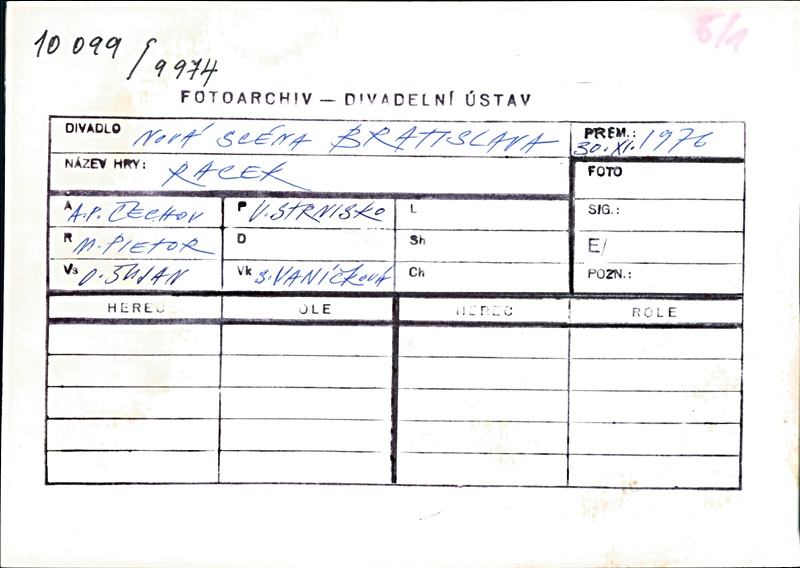 5/1
10 099 / 9974
FOTOARCHIV — DIVADELNÍ ÚSTAV
DIVADLO NOVÁ SCÉNA BRATISLAVA PREM.: 30.XI.1976
NÁZEV HRY: RACEK FOTO
A A.P. ČECHOV P V. STRNISKO L SIG.:
R M. PIETOR D Sh E/
Vs O. ŠUJAN Vk S. VANÍČKOVÁ Ch POZN.:
HEREC OLE HEREC ROLE